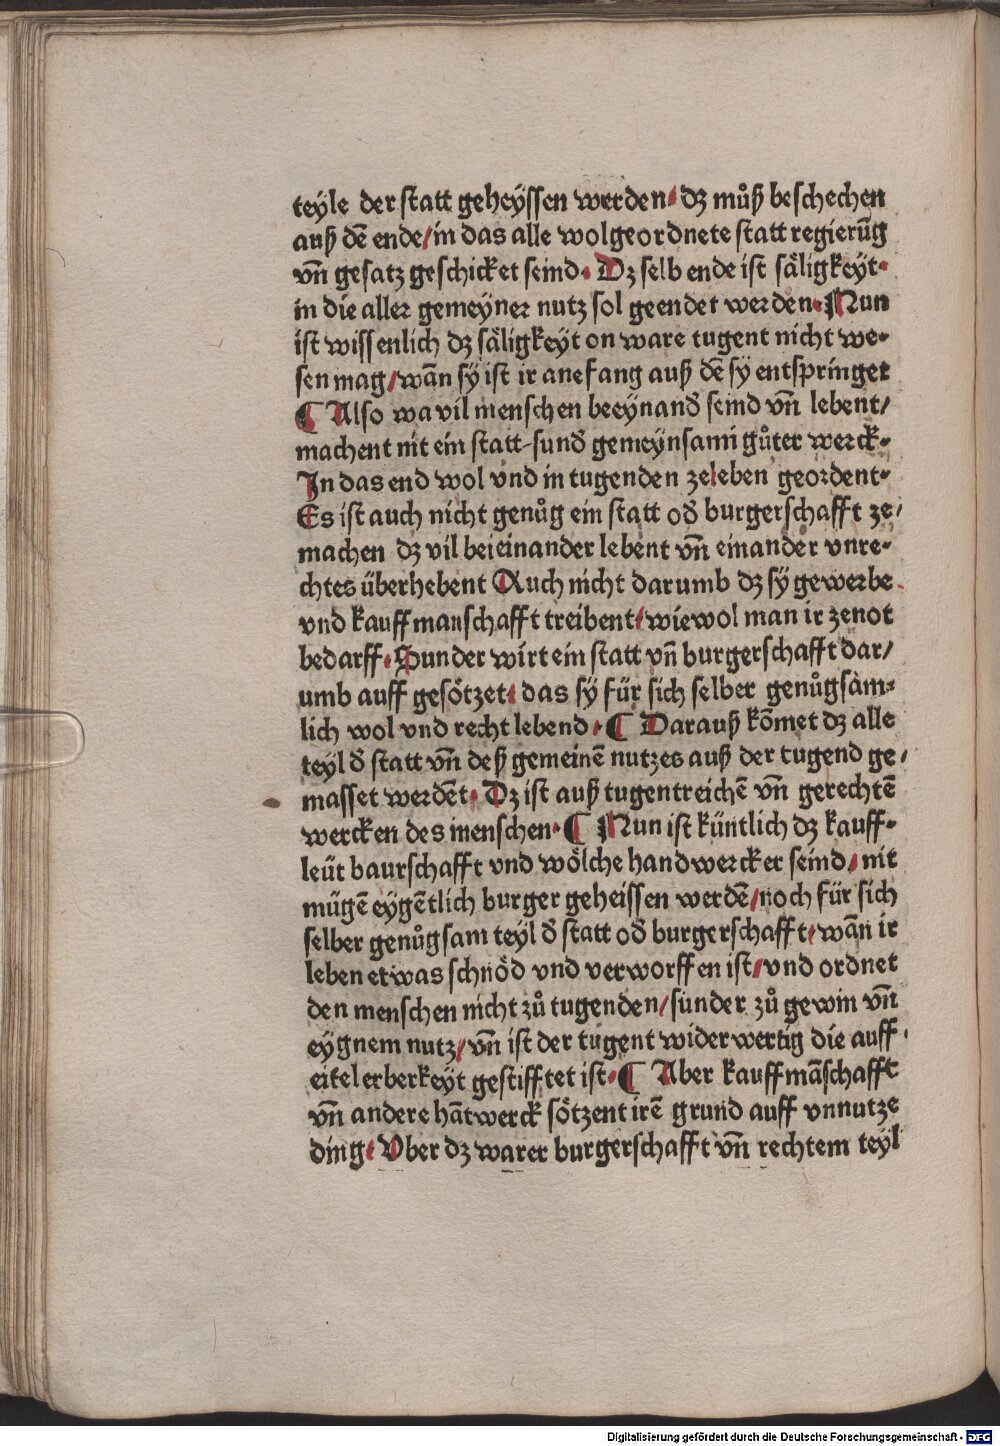 teyle der statt geheyssen werden· dz můß beschechen
auß dē ende/in das alle wolgeordnete statt regierūg
vñ gesatz geschicket seind· Dz selb ende ist säligkeyt·
in die aller gemeyner nutz sol geendet werden· Nun
ist wissenlich dz säligkeyt on ware tugent nicht we-
sen mag/wañ sy ist ir anefang auß dē sy entspringet
¶ Also wa vil menschen beeynand seind vñ lebent/
machent nit ein statt-sund gemeynsam gůter werck-
In das end wol vnd in tugenden zeleben geordent·
Es ist auch nicht genůg ein statt od burgerschafft ze/
machen dz vil beieinander lebent vñ einander vnre-
chtes überhebent Auch nicht darumb dz sy gewerbe
vnd kauffmanschafft treibent/wiewol man ir zenot
bedarff· Sunder wirt ein statt vñ burgerschafft dar/
umb auff gesötzet/ das sy für sich selber genůgsam-
lich wol vnd recht lebend· ¶ Darauß kōmet dz alle
teyl d statt vñ deß gemeinē nutzes auß der tugend ge/
masset werdēt· Dz ist auß tugentreichē vñ gerechtē
wercken des menschen· ¶ Nun ist küntlich dz kauff-
leüt baurschafft vnd wölche handwercker seind/ nit
mügē eygētlich burger geheissen werdē/noch für sich
selber genůgsam teyl d statt od burgerschafft/wañ ir
leben etwas schnöd vnd verworffen ist/vnd ordnet
den menschen nicht zů tugenden/sunder zů gewin vñ
eygnem nutz/vñ ist der tugent widerwertig die auff
eitel erberkeyt gestifftet ist· ¶ Aber kauffmāschafft
vñ andere hātwerck sötzent irē grund auff vnnutze
ding/ Vber dz warer burgerschafft vñ rechtem teyl
Digitalisierung gefördert durch die Deutsche Forschungsgemeinschaft - DFG